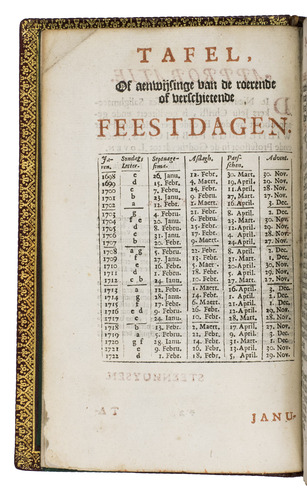 TAFEL,
Of aenwijsinge van de roerende
of verschietende
FEESTDAGEN.
Ja-ren. Sondags Letter. Septuage-sima. Asdagh. Paes-schen. Advent.
1698 e 26. Janu. 12. Febr. 30. Mart. 30. Nov.
1699 d 15. Febr. 4. Maert. 19. April. 29. Nov.
1700 c 7. Febru. 24. Febr. 11. April. 28. Nov.
1701 b 23. Janu. 9. Febr. 27. Mart. 27. Nov.
1702 a 12. Febr. 1. Maert. 16. April. 3. Dec.
1703 g 4. Febru. 21. Febr. 8. April. 2. Dec.
1704 f e 20. Janu. 6. Febru. 23. Mart. 30. Nov.
1705 d 8. Febru. 25. Febr. 12. April. 29. Nov.
1706 c 31. Janu. 17. Febr. 4. April. 28. Nov.
1707 b 20. Febr. 9. Maert. 24. April. 27. Nov.
1708 a g 5. Febru. 22. Febr. 8. April. 2. Dec.
1709 f 27. Janu. 13. Febr. 31. Mart. 1. Dec.
1710 e 16. Febr. 5. Maert. 20. April. 30. Nov.
1711 d 1. Febr. 18. Febr. 5. April. 29. Nov.
1712 c b 24. Janu. 10. Febr. 27. Mart. 27. Nov.
1713 a 12. Febr. 1. Maert. 16. April. 3. Dec.
1714 g 28. Janu. 14. Febr. 1. April. 2. Dec.
1715 f 17. Febr. 6. Maert. 21. April. 1. Dec.
1716 e d 9. Febru. 26. Febr. 12. April. 29. Nov.
1717 c 24. Janu. 10. Febr. 28. Mart. 28. Nov.
1718 b 13. Febr. 2. Maert. 17. April. 27. Nov.
1719 a 5. Febru. 22. Febr. 9. April. 3. Dec.
1720 g f 28. Janu. 14. Febr. 31. Mart. 1. Dec.
1721 e 9. Febr. 13. April. 30. Nov.
1722 d 1. Febr. 18. Febr. 5. April. 29. Nov.
JANU-